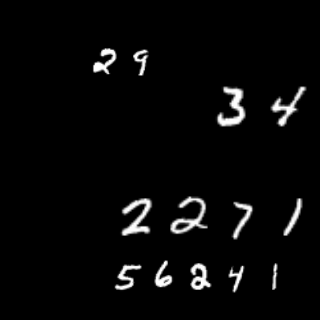 29
34
2271
56241